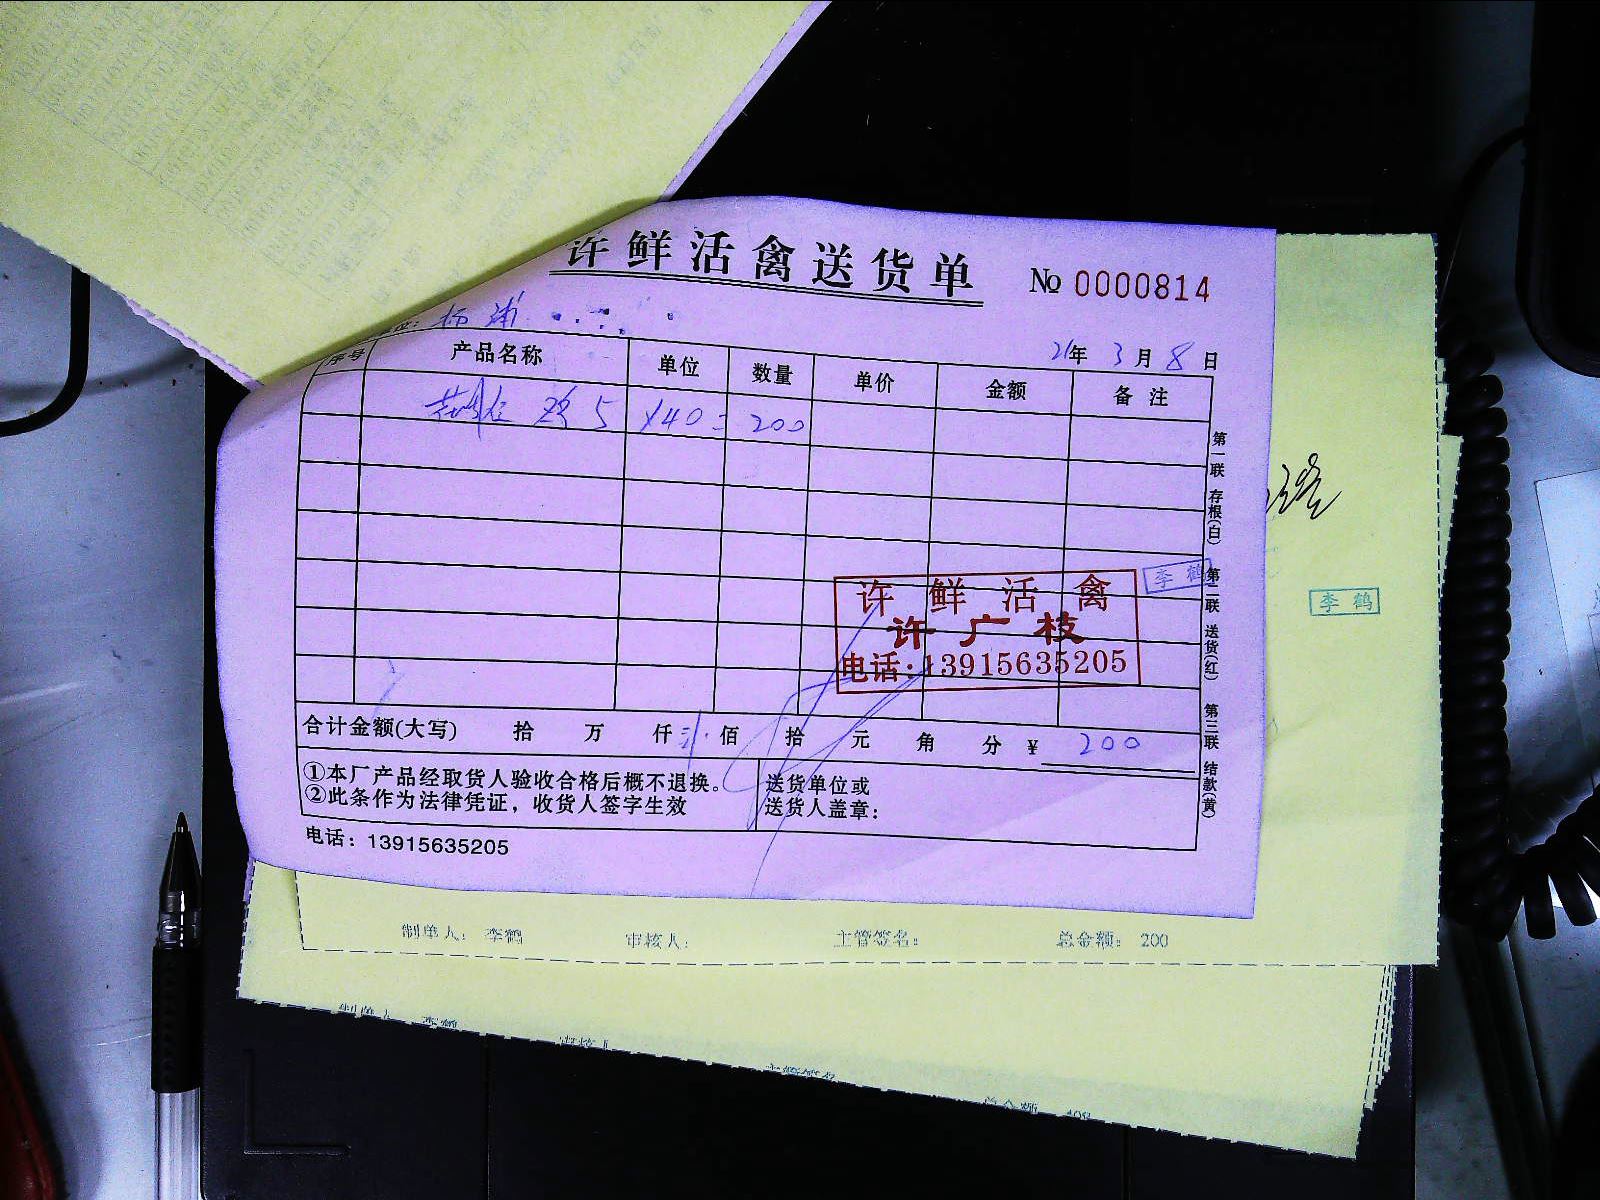 许鲜活禽送货单
№ 0000814
21年 3月 8日
序号 产品名称 单位 数量 单价 金额 备注
5 ×40 = 200
第一联 存根(白) 第二联 送货(红) 第三联 结款(黄)
李鹤
李鹤
许鲜活禽
许广枝
电话:13915635205
合计金额(大写) 拾 万 仟 佰 拾 元 角 分 ¥ 200
①本厂产品经取货人验收合格后概不退换。
②此条作为法律凭证，收货人签字生效
送货单位或
送货人盖章:
电话: 13915635205
制单人: 李鹤 审核人: 主管签名: 总金额: 200